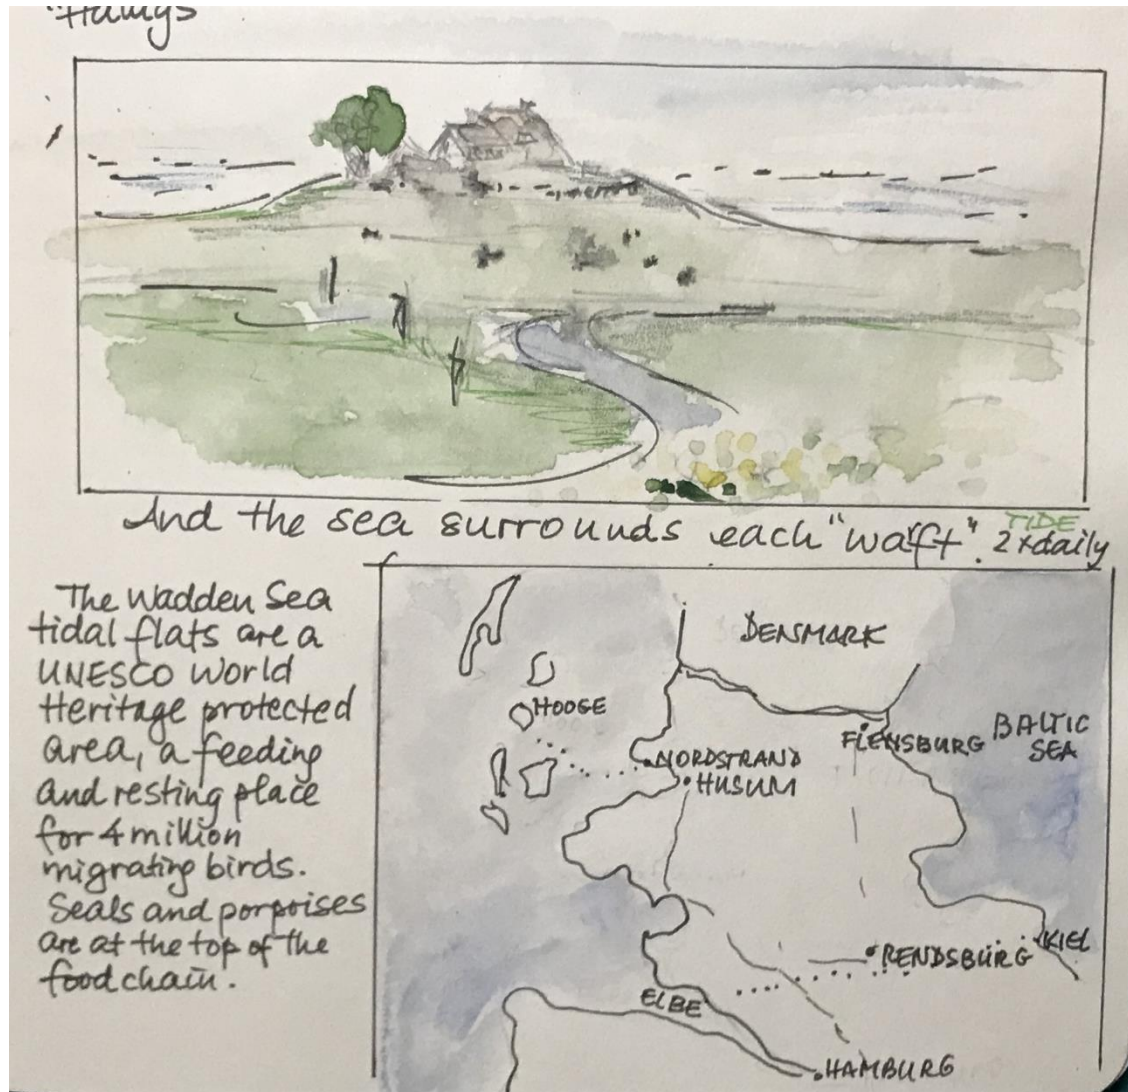 And the sea surrounds each "warft".
TIDE
2xdaily
The Wadden Sea
tidal flats are a
UNESCO World
Heritage protected
area, a feeding
and resting place
for 4 million
migrating birds.
Seals and porpoises
are at the top of the
food chain.
DENSMARK
HOOGE
FLENSBURG
BALTIC
SEA
NORDSTRAND
HUSUM
KIEL
RENDSBURG
ELBE
HAMBURG